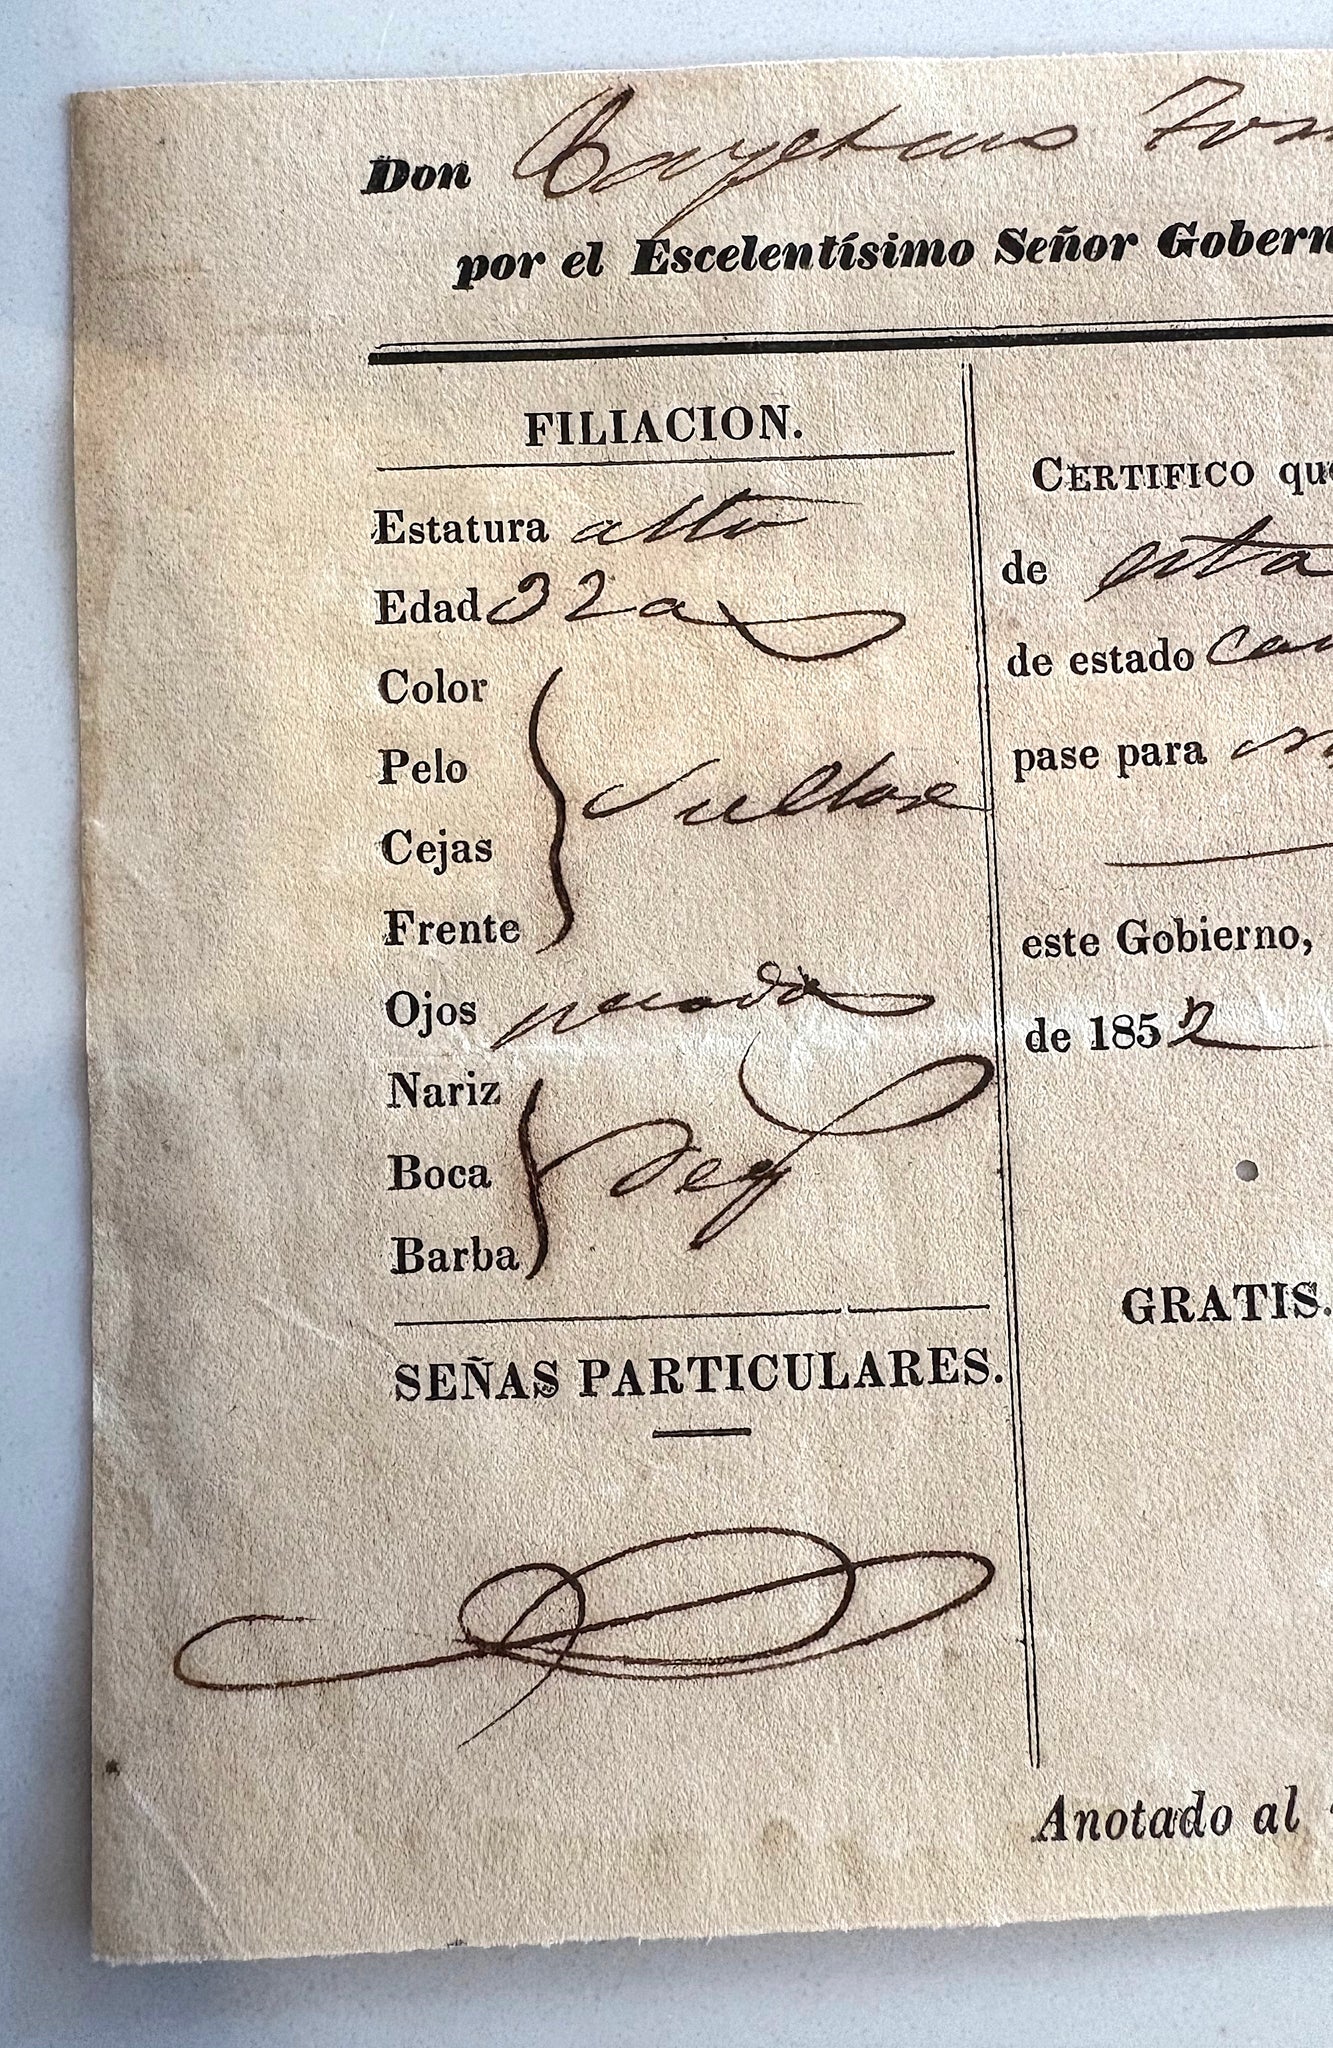 Don Cayetano
por el Escelentísimo Señor Gobern
FILIACION.
Estatura alto
Edad 32 a
Color
Pelo
Cejas
Frente
Ojos
Nariz
Boca
Barba
SEÑAS PARTICULARES.
CERTIFICO que
de esta
de estado
pase para
este Gobierno,
de 1852
GRATIS.
Anotado al